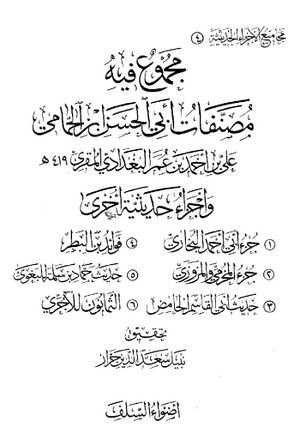 مجاميع الأجزاء الحديثية ٩
مجموع فيه
مصنفات أبي الحسن ابن الحمامي
علي بن أحمد بن عمر البغدادي المقرئ ٤١٩ هـ
وأجزاء حديثية أخرى
١ جزء أبي أحمد البخاري
٤ فوائد ابن البطر
٢ جزء المخرمي والمروزي
٥ حديث حماد بن سلمة للبغوي
٣ حديث أبي القاسم الحامض
٦ الثمانون للآجري
تحقيق
نبيل سعد الدين جرار
أضواء السلف